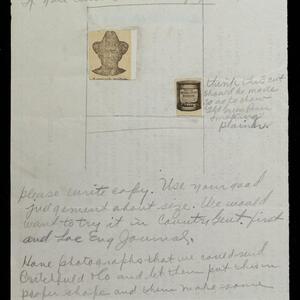 think this cut
should be made
so as to show
plainer.
please write copy. Use your good
judgement about size. We would
want to try it in Country Gent. first
and Loc Eng Journal.
Have photographs that we could send
Critchfield & Co and let them put them in
proper shape and them make some